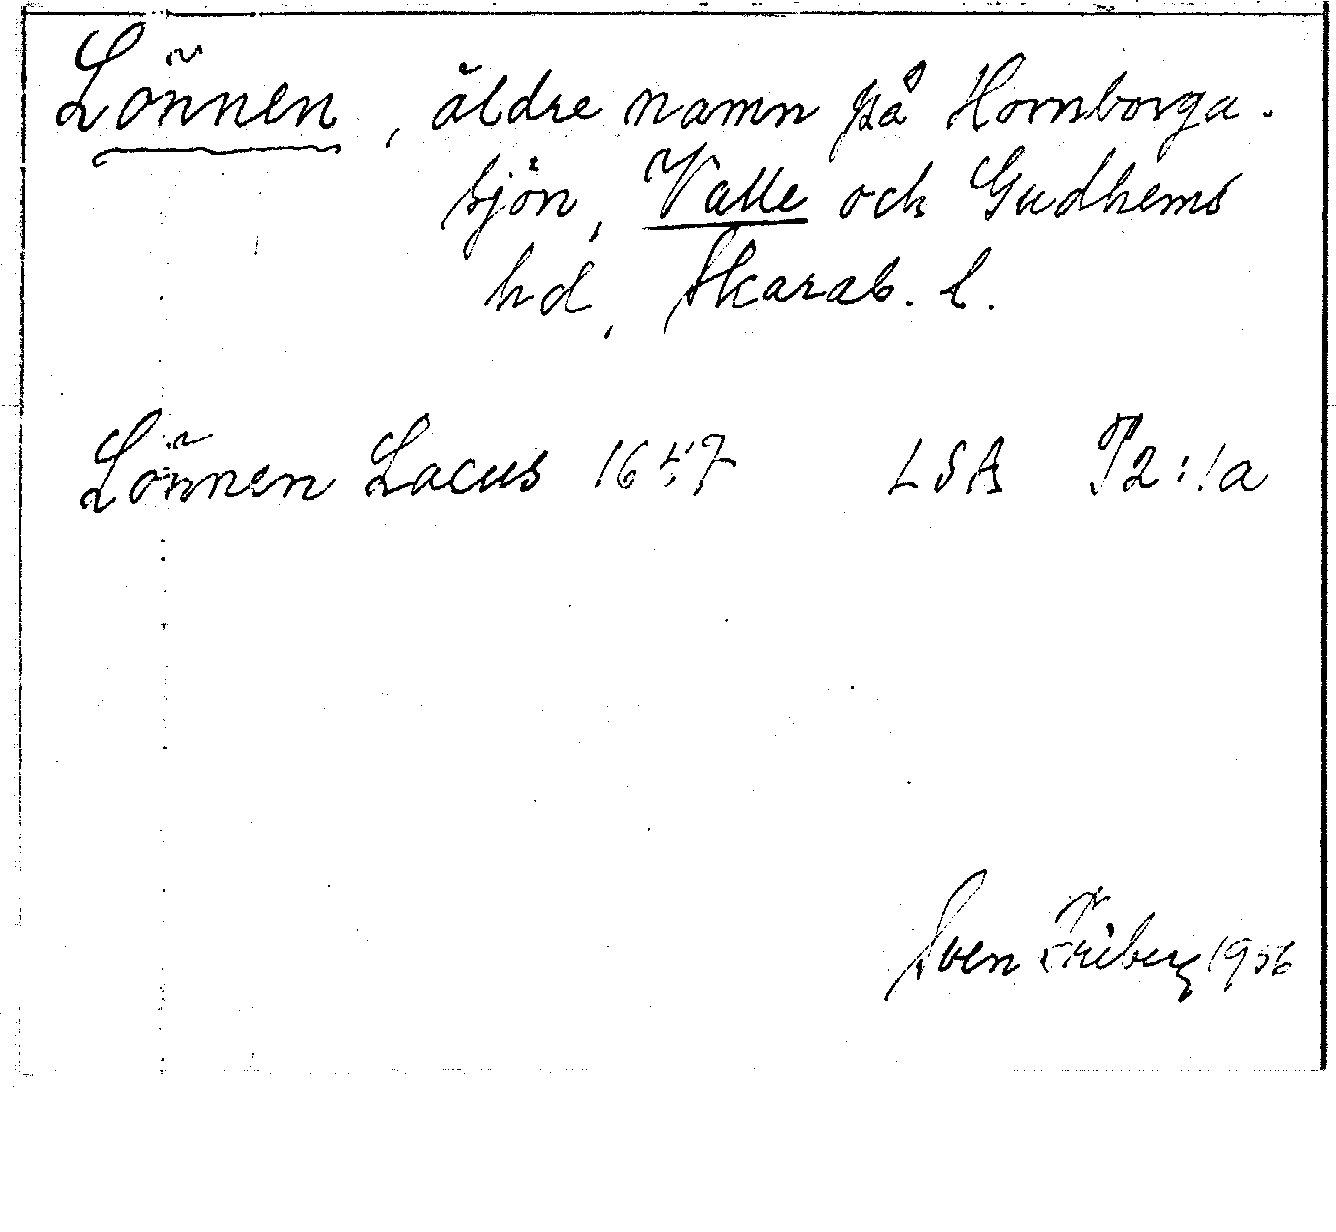 Lönnen, äldre namn på Hornborga-
sjön, Valle och Gudhems
hd, Skarab. l.
Lönnen Lacus 1657 LSA P2:1a
Sven Friberg 1956